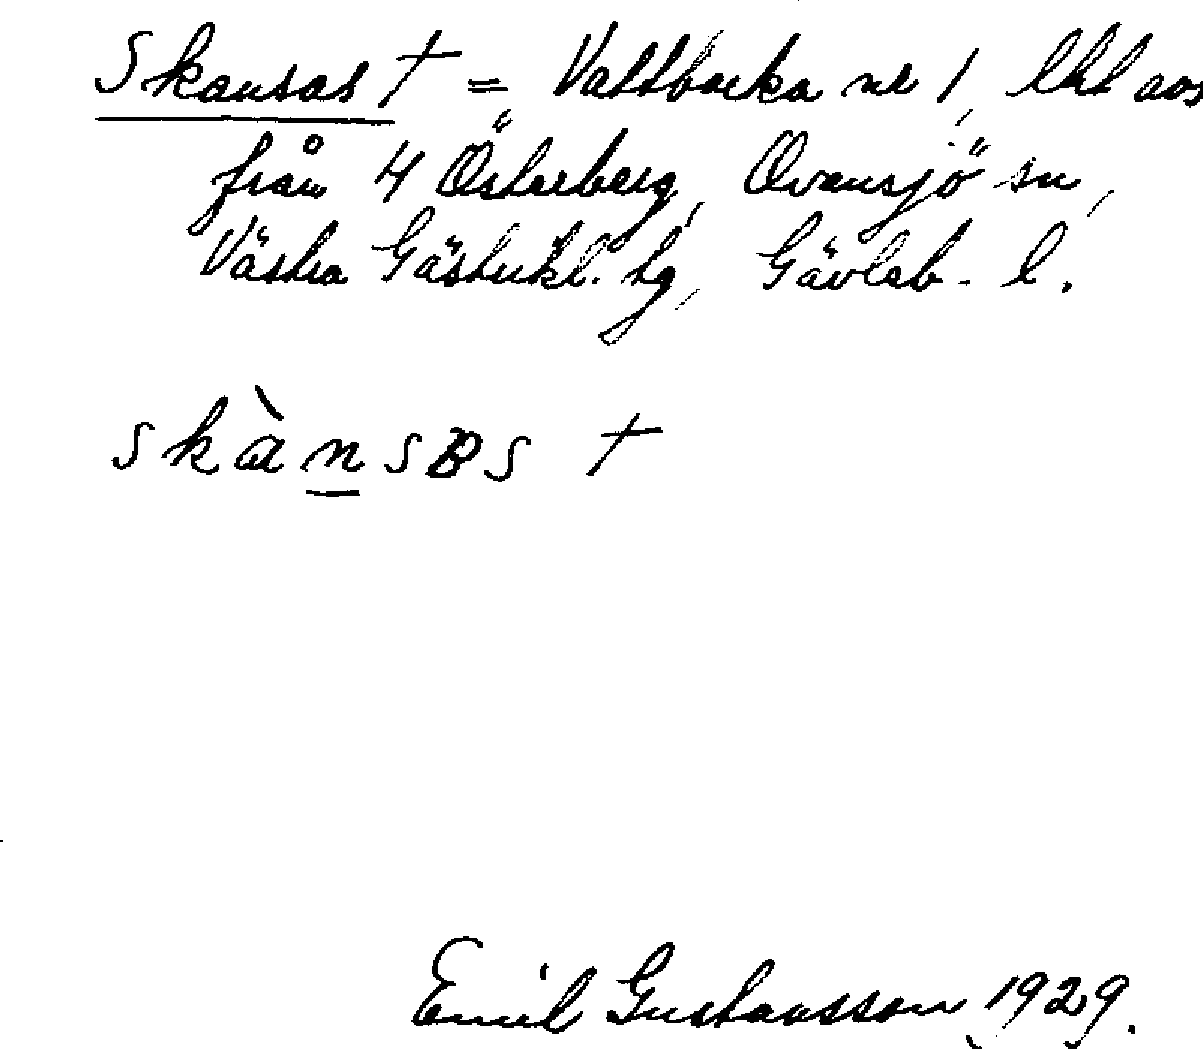 Skansas † = Vallbacka nr 1, lht avs
från 4 Österberg, Ovansjö sn,
Västra Gästrikl. hg, Gävleb. l.
skànsɐs †
Emil Gustavsson 1929.